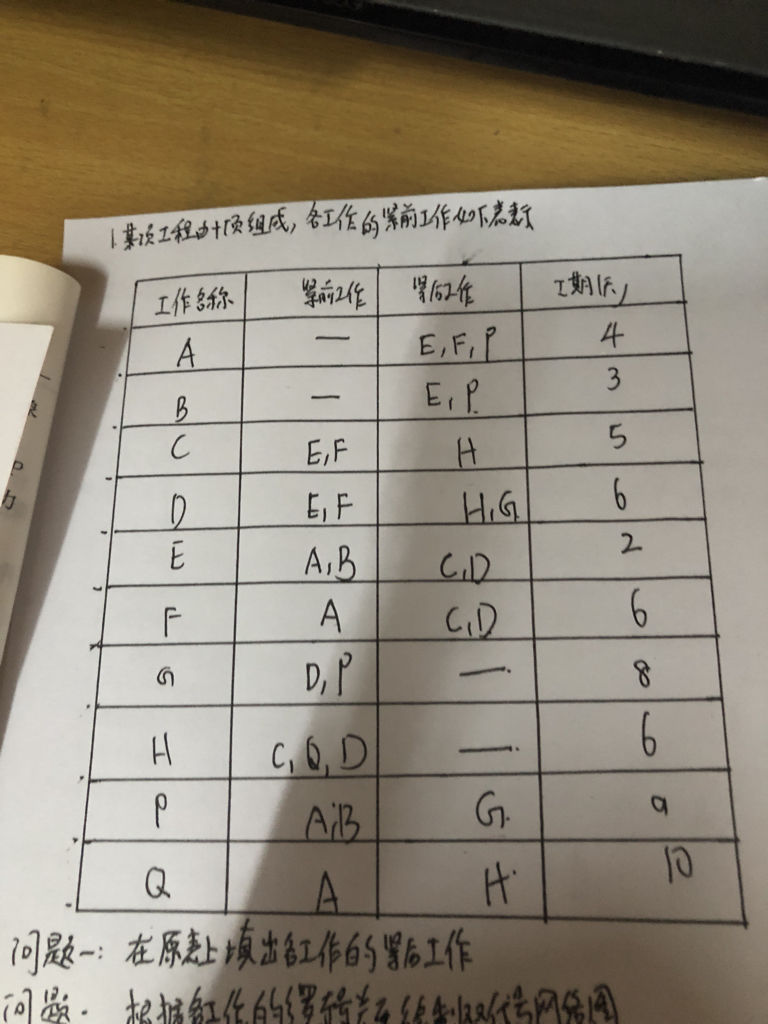 1.某项工程由十项组成,各工作的紧前工作如下表表示
工作名称 紧前工作 紧后工作 工期(天)
A — E,F,P 4
B — E,P. 3
C E,F H 5
D E,F H,G. 6
E A,B C,D 2
F A C,D 6
G D,P — 8
H C,Q,D —. 6
P A,B G. 9
Q A H. 10
问题一:在原表上填出各工作的紧后工作
问题. 根据各工作的逻辑关系绘制双代号网络图